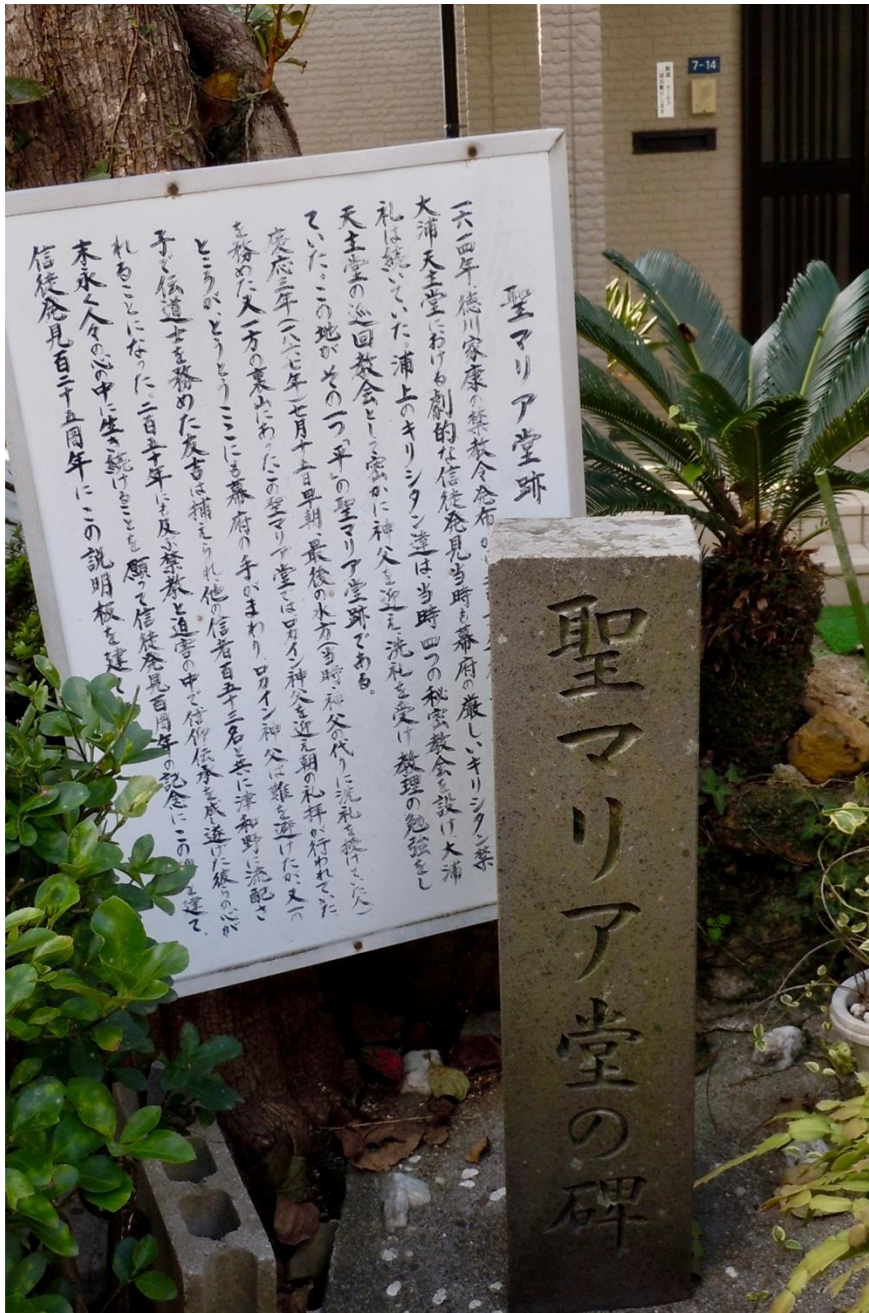 聖マリア堂跡
一六一四年 徳川家康の禁教令発布か
大浦天主堂における劇的な信徒発見当時も幕府の厳しいキリシタン禁
礼は続いていた。浦上のキリシタン達は当時 四つの秘密教会を設け、大浦
天主堂の巡回教会として密かに神父を迎え、洗礼を受け 教理の勉強をし
ていた。この地が その一つ「平」の聖マリア堂跡である。
慶応三年(一八六七年)七月十五日早朝 最後の水方(当時、神父の代りに洗礼を授けていた人)
を務めた又一方の裏山にあったこの聖マリア堂ではロカイン神父を迎え朝の礼拝が行われていた
ところが、とうとうここにも幕府の手がまわり、ロカイン神父は難を避けたが、又一の
子で伝道士を務めた友吉は捕えられ、他の信者百五十三名と共に津和野に流配さ
れることになった。二百五十年にも及ぶ禁教と迫害の中で信仰伝承を成し遂げた彼らの心が
末永く人々の心の中に生き続けることを 願って信徒発見百周年の記念にこの を建て、
信徒発見百二十五周年に この説明板を建て
聖マリア堂の碑
7-14